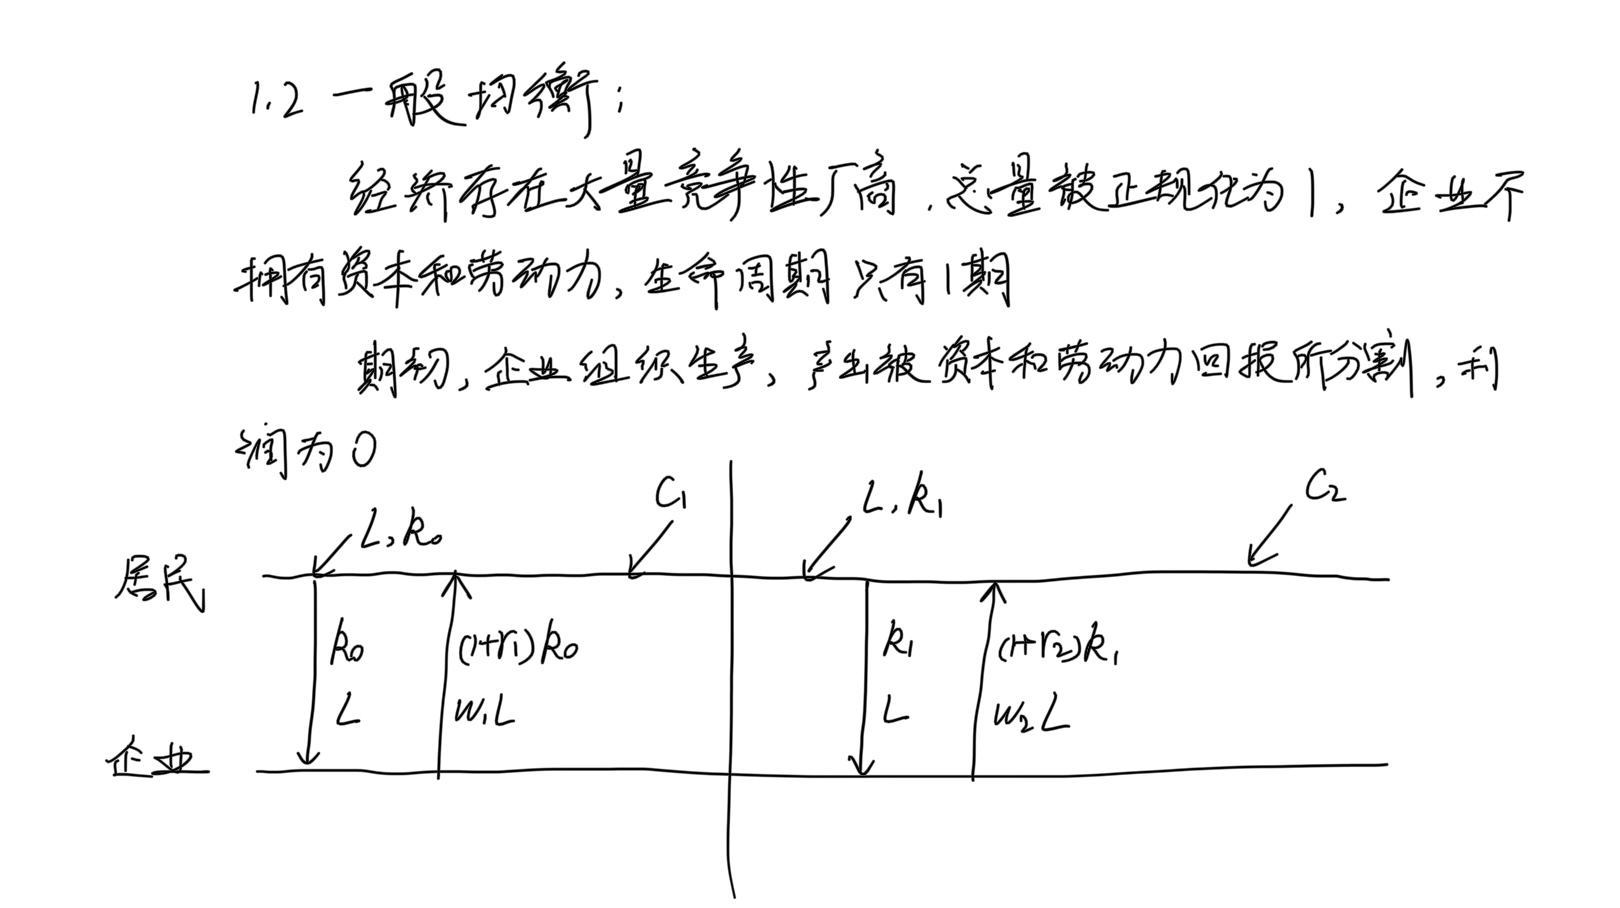 1.2 一般均衡:
经济存在大量竞争性厂商,总量被正规化为1,企业不
拥有资本和劳动力,生命周期只有1期
期初,企业组织生产,产出被资本和劳动力回报所分割,利
润为0
L,k₀ C₁ L,k₁ C₂
居民
k₀ (1+r₁)k₀ k₁ (1+r₂)k₁
L w₁L L w₂L
企业